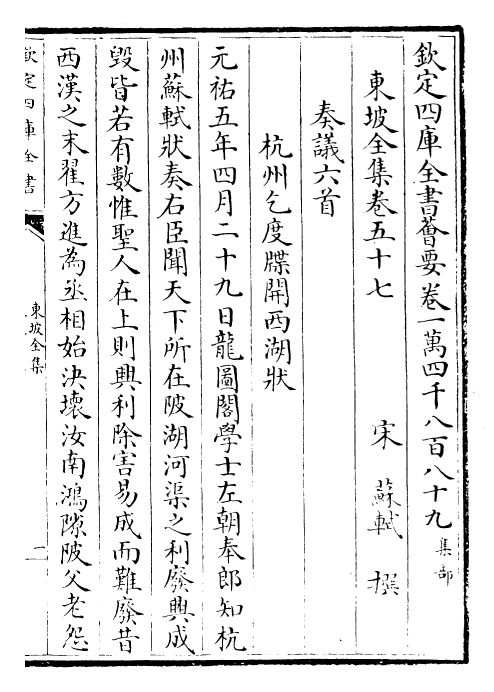 欽定四庫全書薈要卷一萬四千八百八十九集部
東坡全集卷五十七
宋 蘇軾 撰
奏議六首
杭州乞度牒開西湖狀
元祐五年四月二十九日龍圖閣學士左朝奉郎知杭
州蘇軾狀奏右臣聞天下所在陂湖河渠之利廢興成
毀皆若有數惟聖人在上則興利除害易成而難廢昔
西漢之末翟方進為丞相始決壞汝南鴻隙陂父老怨
欽定四庫全書
東坡全集